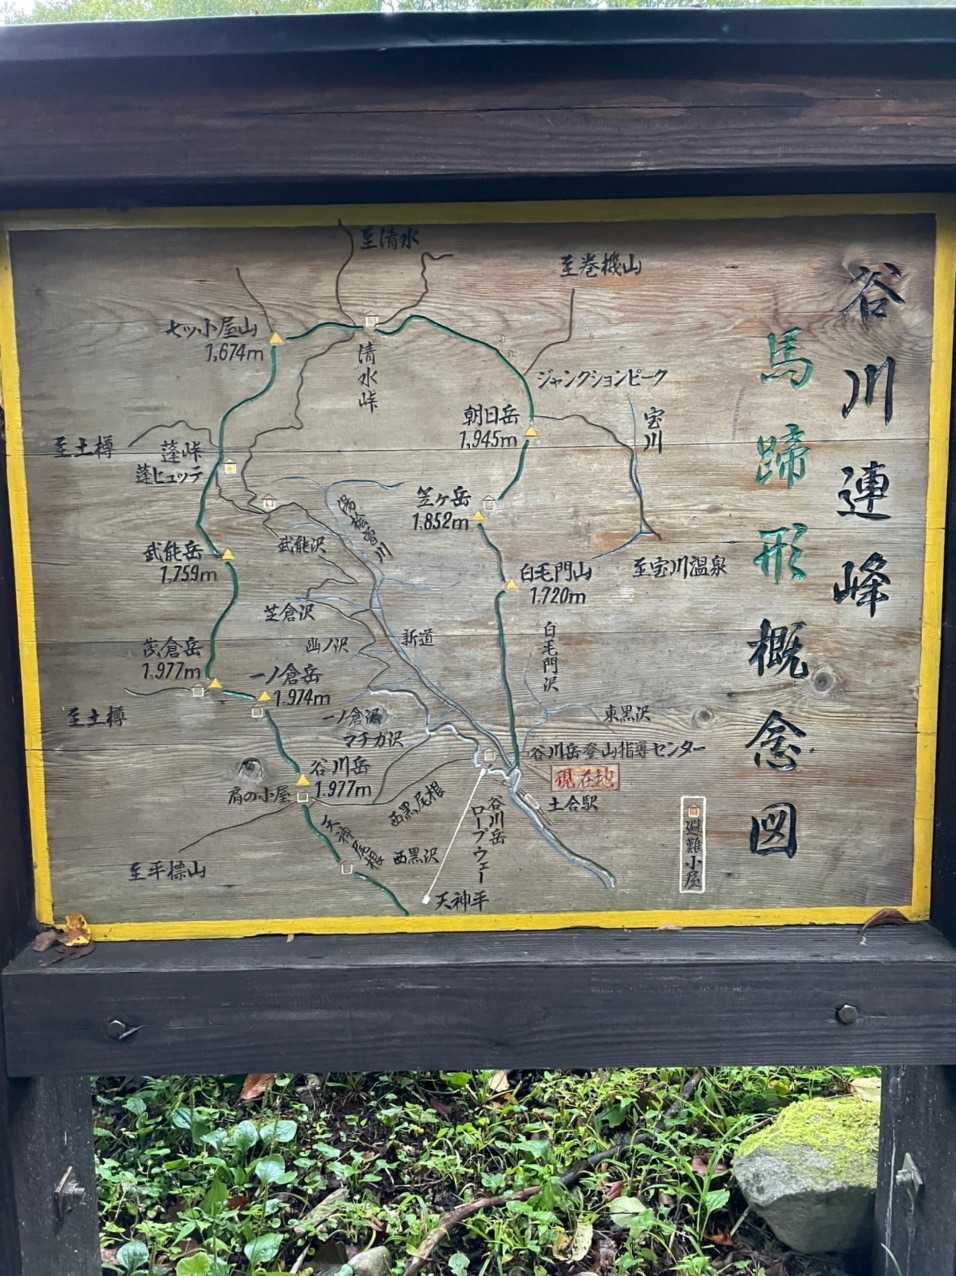 谷川連峰
馬蹄形概念図
至清水
至巻機山
七ッ小屋山
1,674m
清水峠
ジャンクションピーク
朝日岳
1,945m
宝川
至土樽
蓬峠
蓬ヒュッテ
笠ヶ岳
1.852m
湯檜曽川
武能沢
武能岳
1.759m
白毛門山
1.720m
至宝川温泉
芝倉沢
幽ノ沢
新道
白毛門沢
茂倉岳
1.977m
一ノ倉岳
1.974m
至土樽
一ノ倉沢
マチガ沢
東黒沢
谷川岳登山指導センター
現在地
土合駅
谷川岳
1.977m
肩の小屋
西黒尾根
谷川岳
ロープウェー
天神尾根
西黒沢
至平標山
天神平
避難小屋